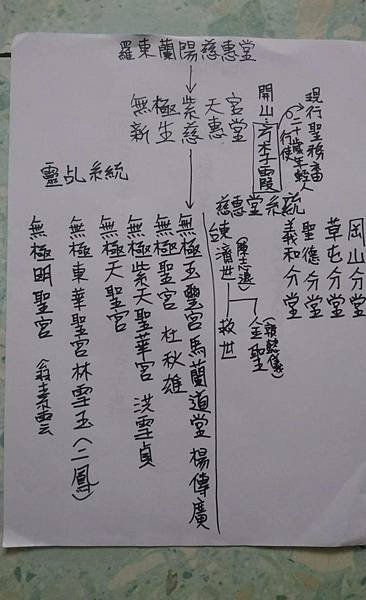 羅東蘭陽慈惠堂
無極紫天宮
新生慈惠堂
開山 李霞
現行聖務畜
二十歲年輕人
行使
靈乩系統
慈惠堂系統
岡山分堂
草屯分堂
聖德分堂
義和分堂
濟世
救世
全聖
無極玉靈宮馬蘭道堂 楊傳廣
無極聖宮 杜秋雄
無極紫天聖華宮 洪雪貞
無極天聖宮
無極東華聖宮林雪玉(二鳳)
無極明聖宮 翁素雲